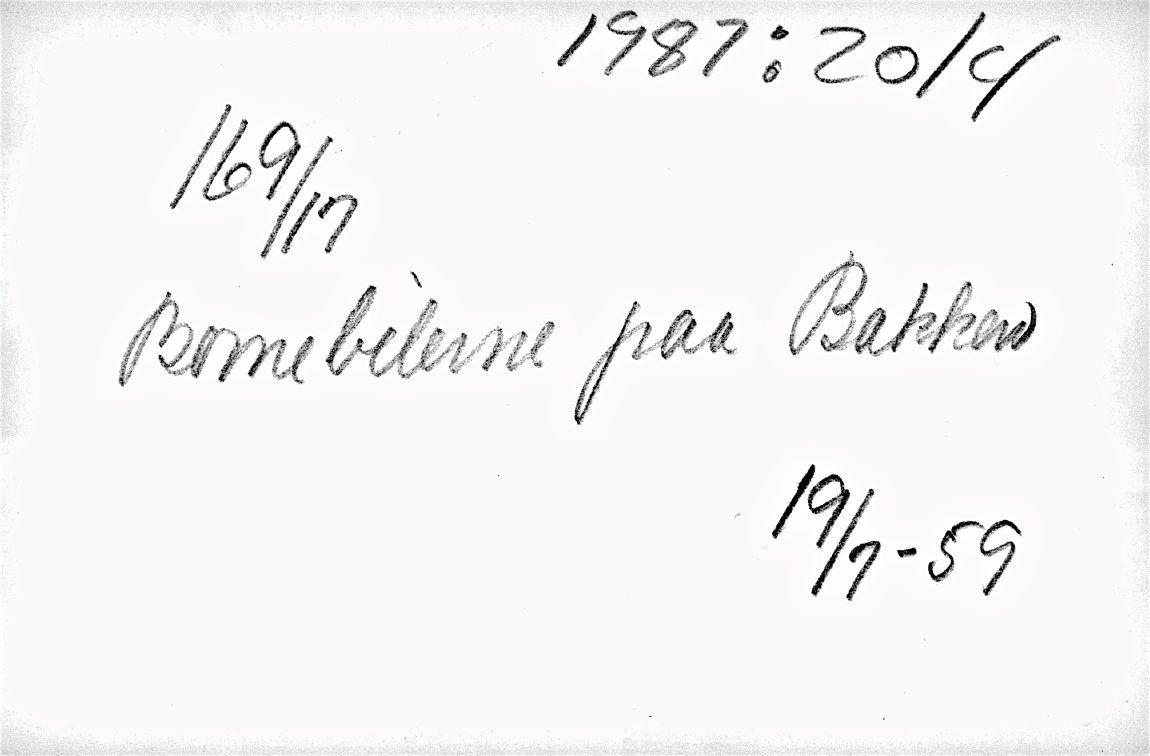 1987:20/4
169/17
Børnebilerne paa Bakken
19/7-59